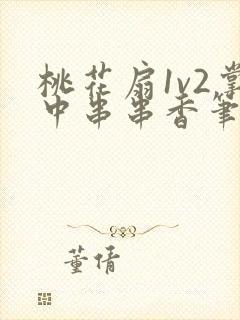 桃花扇1v2掌
中串串香笔
董倩